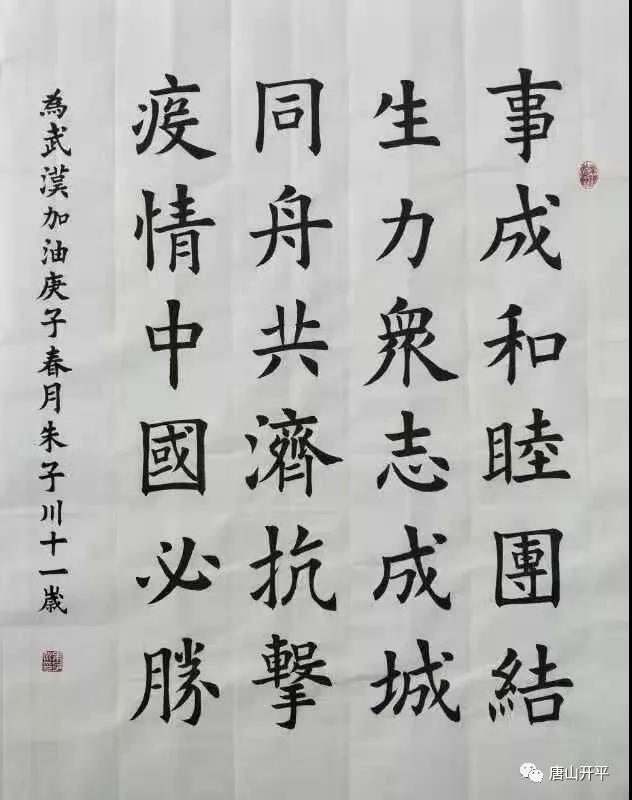 事成和睦團結
生力衆志成城
同舟共濟抗擊
疫情中國必勝
為武漢加油庚子春月朱子川十一歲
唐山开平